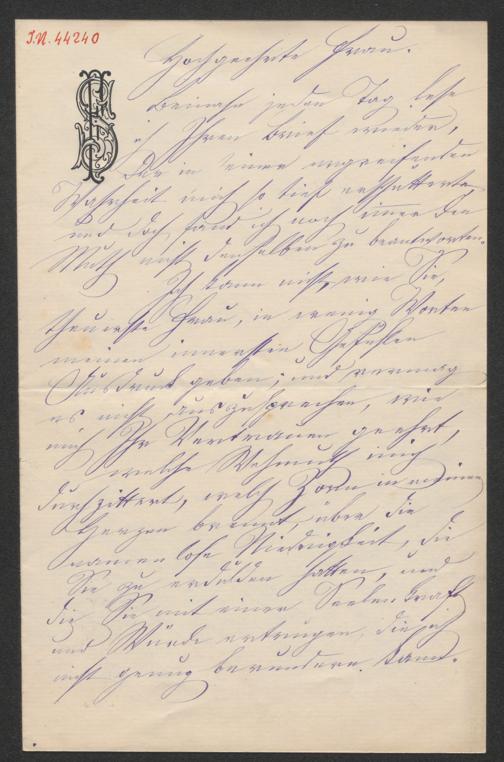 I.N. 44240
Hochgeehrte Frau.
Beinahe jeden Tag lese
ich Ihren Brief wieder,
Der in seiner ergreifenden
Wahrheit mich so tief erschütterte
und doch fand ich noch immer den
Muth nicht denselben zu beantworten.
Ich kann nicht, wie Sie,
theuerste Frau, in wenig Worten
meinen innersten Gefühlen
Ausdruck geben; und vermag
es nicht auszusprechen, wie
mich Ihr Vertrauen geehrt,
welche Wehmuth mich
durchzittert, welch Zorn in meinem
Herzen brennt, über die
namenlose Niedrigkeit, die
Sie zu erdulden hatten, und
die Sie mit einer Seelenkraft
und Würde ertrugen, die ich
nicht genug bewundern kann.